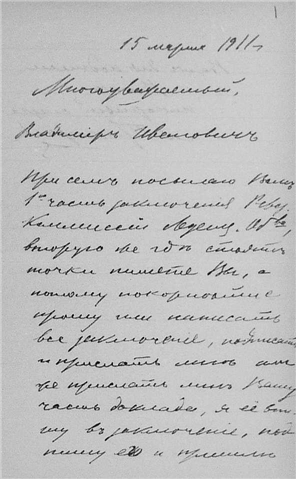 1
15 марта 1911 г.
Многоуважаемый,
Владимиръ Ивановичъ
При семъ посылаю Вамъ
1ю часть заключенія Реви.
Коммиссіи Общ.
вторую же гдѣ стоятъ
точки пишете Вы, а
потому покорнѣйше
прошу или написать
все заключеніе, подписать
и прислать мнѣ или
же прислать мнѣ Вашу
часть доклада, я её впи
шу въ заключеніе, под
пишу его и пришлю